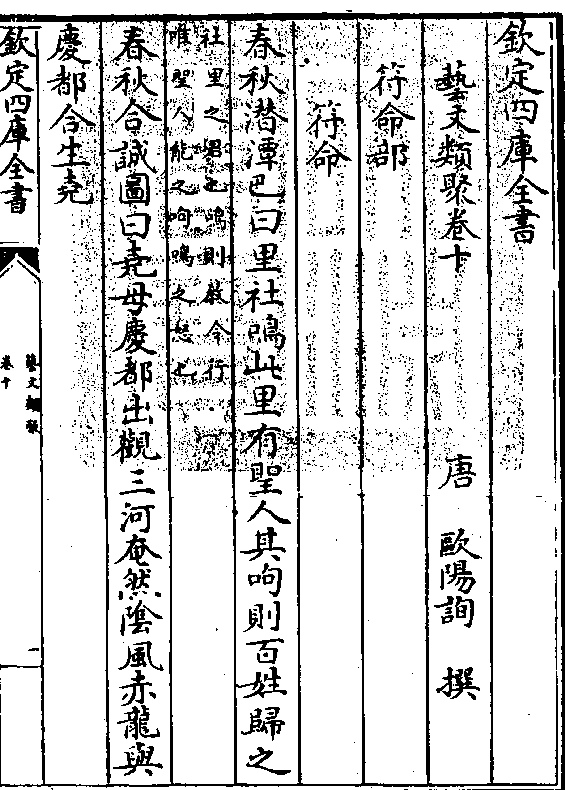 欽定四庫全書
藝文類聚卷十 唐 歐陽詢 撰
符命部
符命
春秋潜潭巴曰里社鳴此里有聖人其呴則百姓歸之
社里之君也鳴則教令行
唯聖人能之呴鳴之怒也
春秋合誠圖曰堯母慶都出觀三河奄然陰風赤龍與
慶都合生堯
欽定四庫全書
藝文類聚
卷十
一